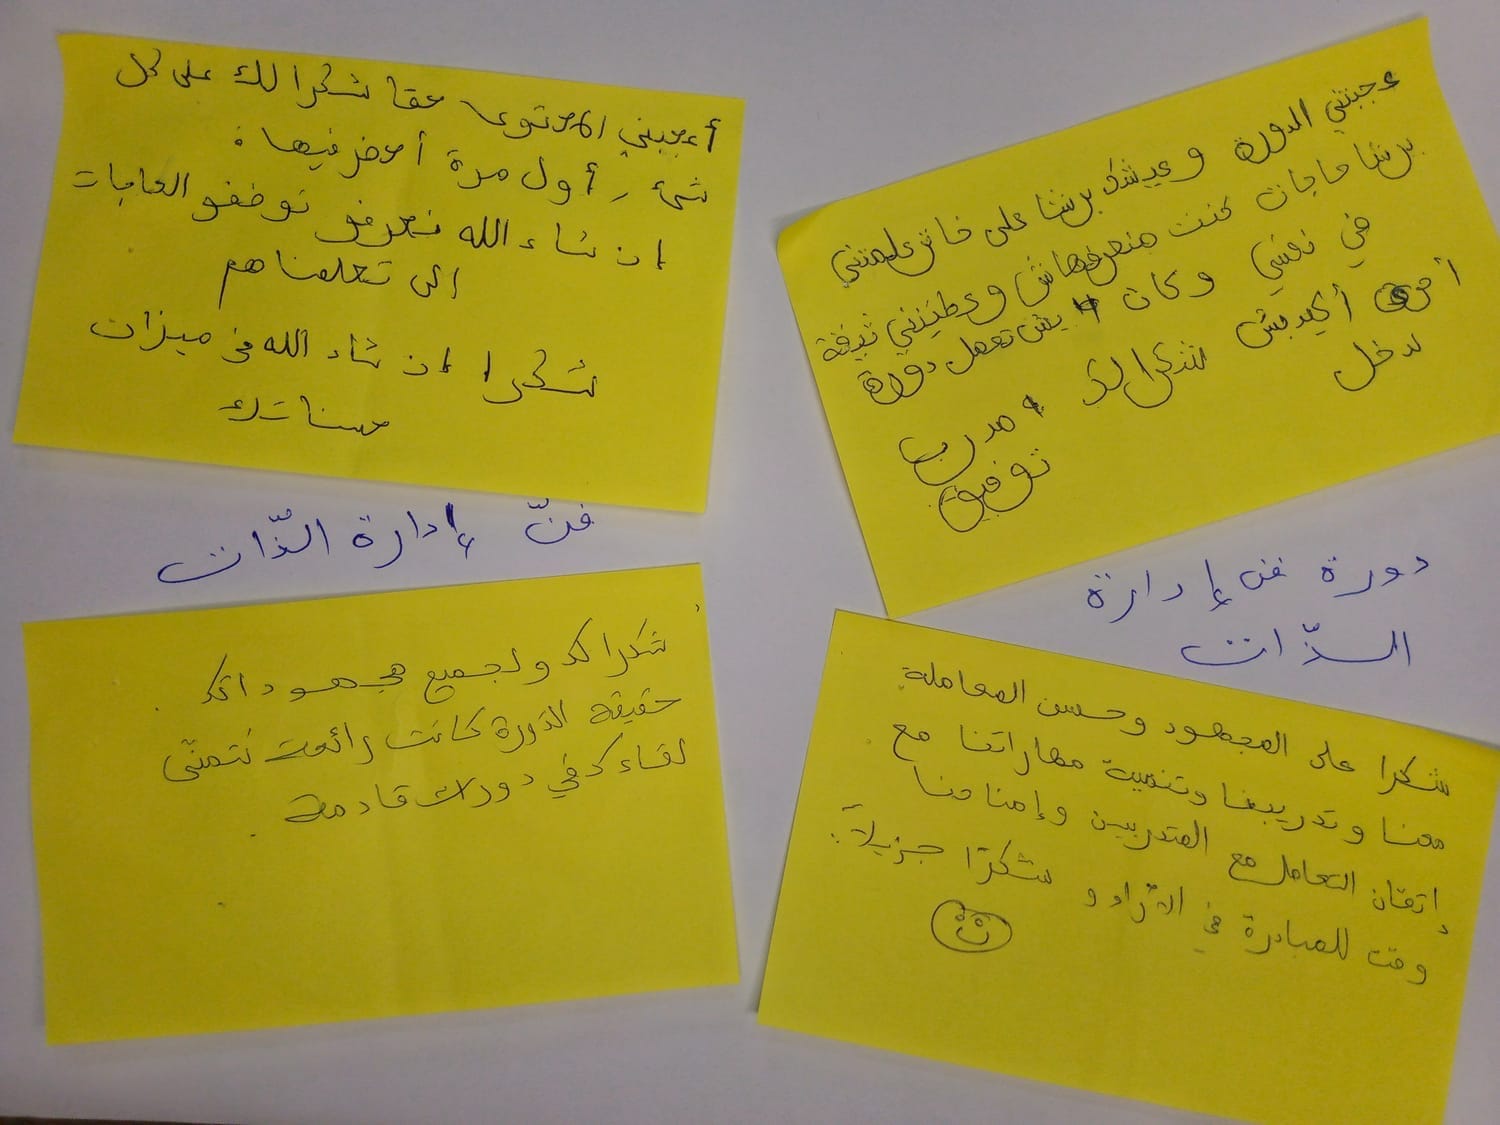 أعجبني المحتوى حقا شكرا لك على كل
شيء، أول مرة أحضر فيها
إن شاء الله نعرفو نوظفو الحاجات
إلى تعلمناهم
شكرا إن شاء الله في ميزان
حسناتك
عجبتني الدورة وعيشك برشا على خاتر علمتني
برشا حاجات كنت منعرفهاش وعطيتني ثيقة
في نفسي وكان بش تعمل دورة
أخرى أكيد بش ندخل
شكرا لك مدرب
توفيق
فنّ إدارة الذّات
دورة فن إدارة
الذّات
شكرا لك ولجميع مجهوداتك.
حقيقة الدورة كانت رائعة نتمنّى
لقاءك في دورات قادمة.
شكرا على المجهود وحسن المعاملة
معنا وتدريبنا وتنمية مهاراتنا مع
إتقان التعامل مع المتدربين
وقت للمبادرة في و شكرًا جزيلاً.